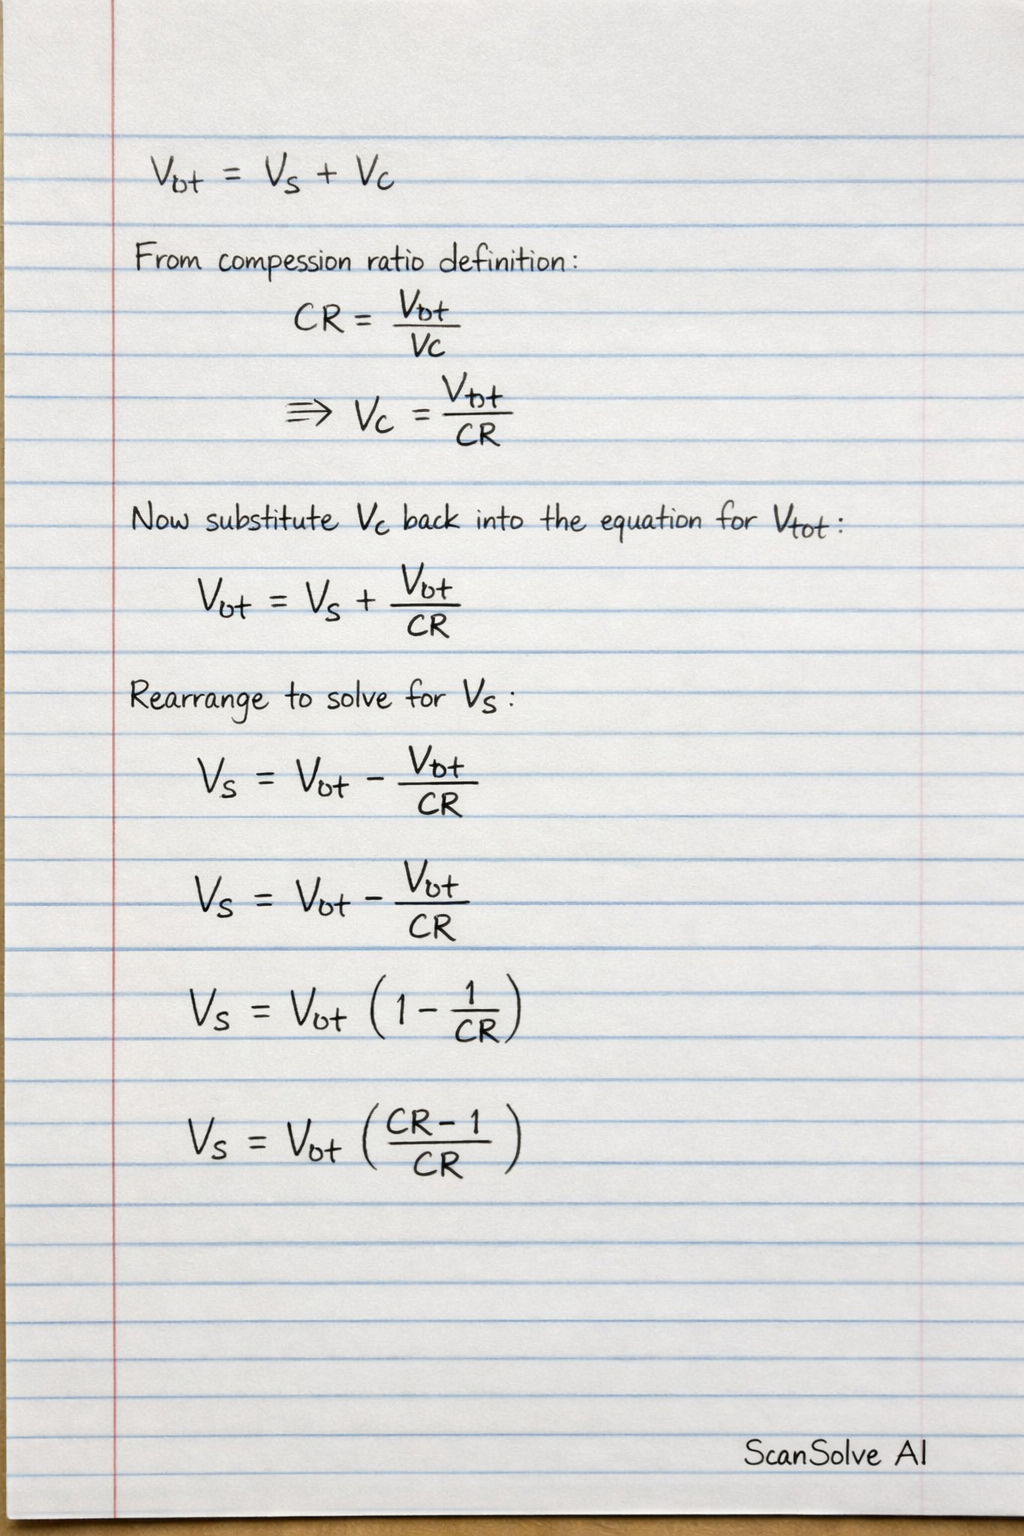 Vtot = Vs + Vc
From compession ratio definition:
CR = Vtot / Vc
⇒ Vc = Vtot / CR
Now substitute Vc back into the equation for Vtot:
Vtot = Vs + Vtot / CR
Rearrange to solve for Vs:
Vs = Vtot - Vtot / CR
Vs = Vtot - Vtot / CR
Vs = Vtot (1 - 1 / CR)
Vs = Vtot (CR - 1 / CR)
ScanSolve AI